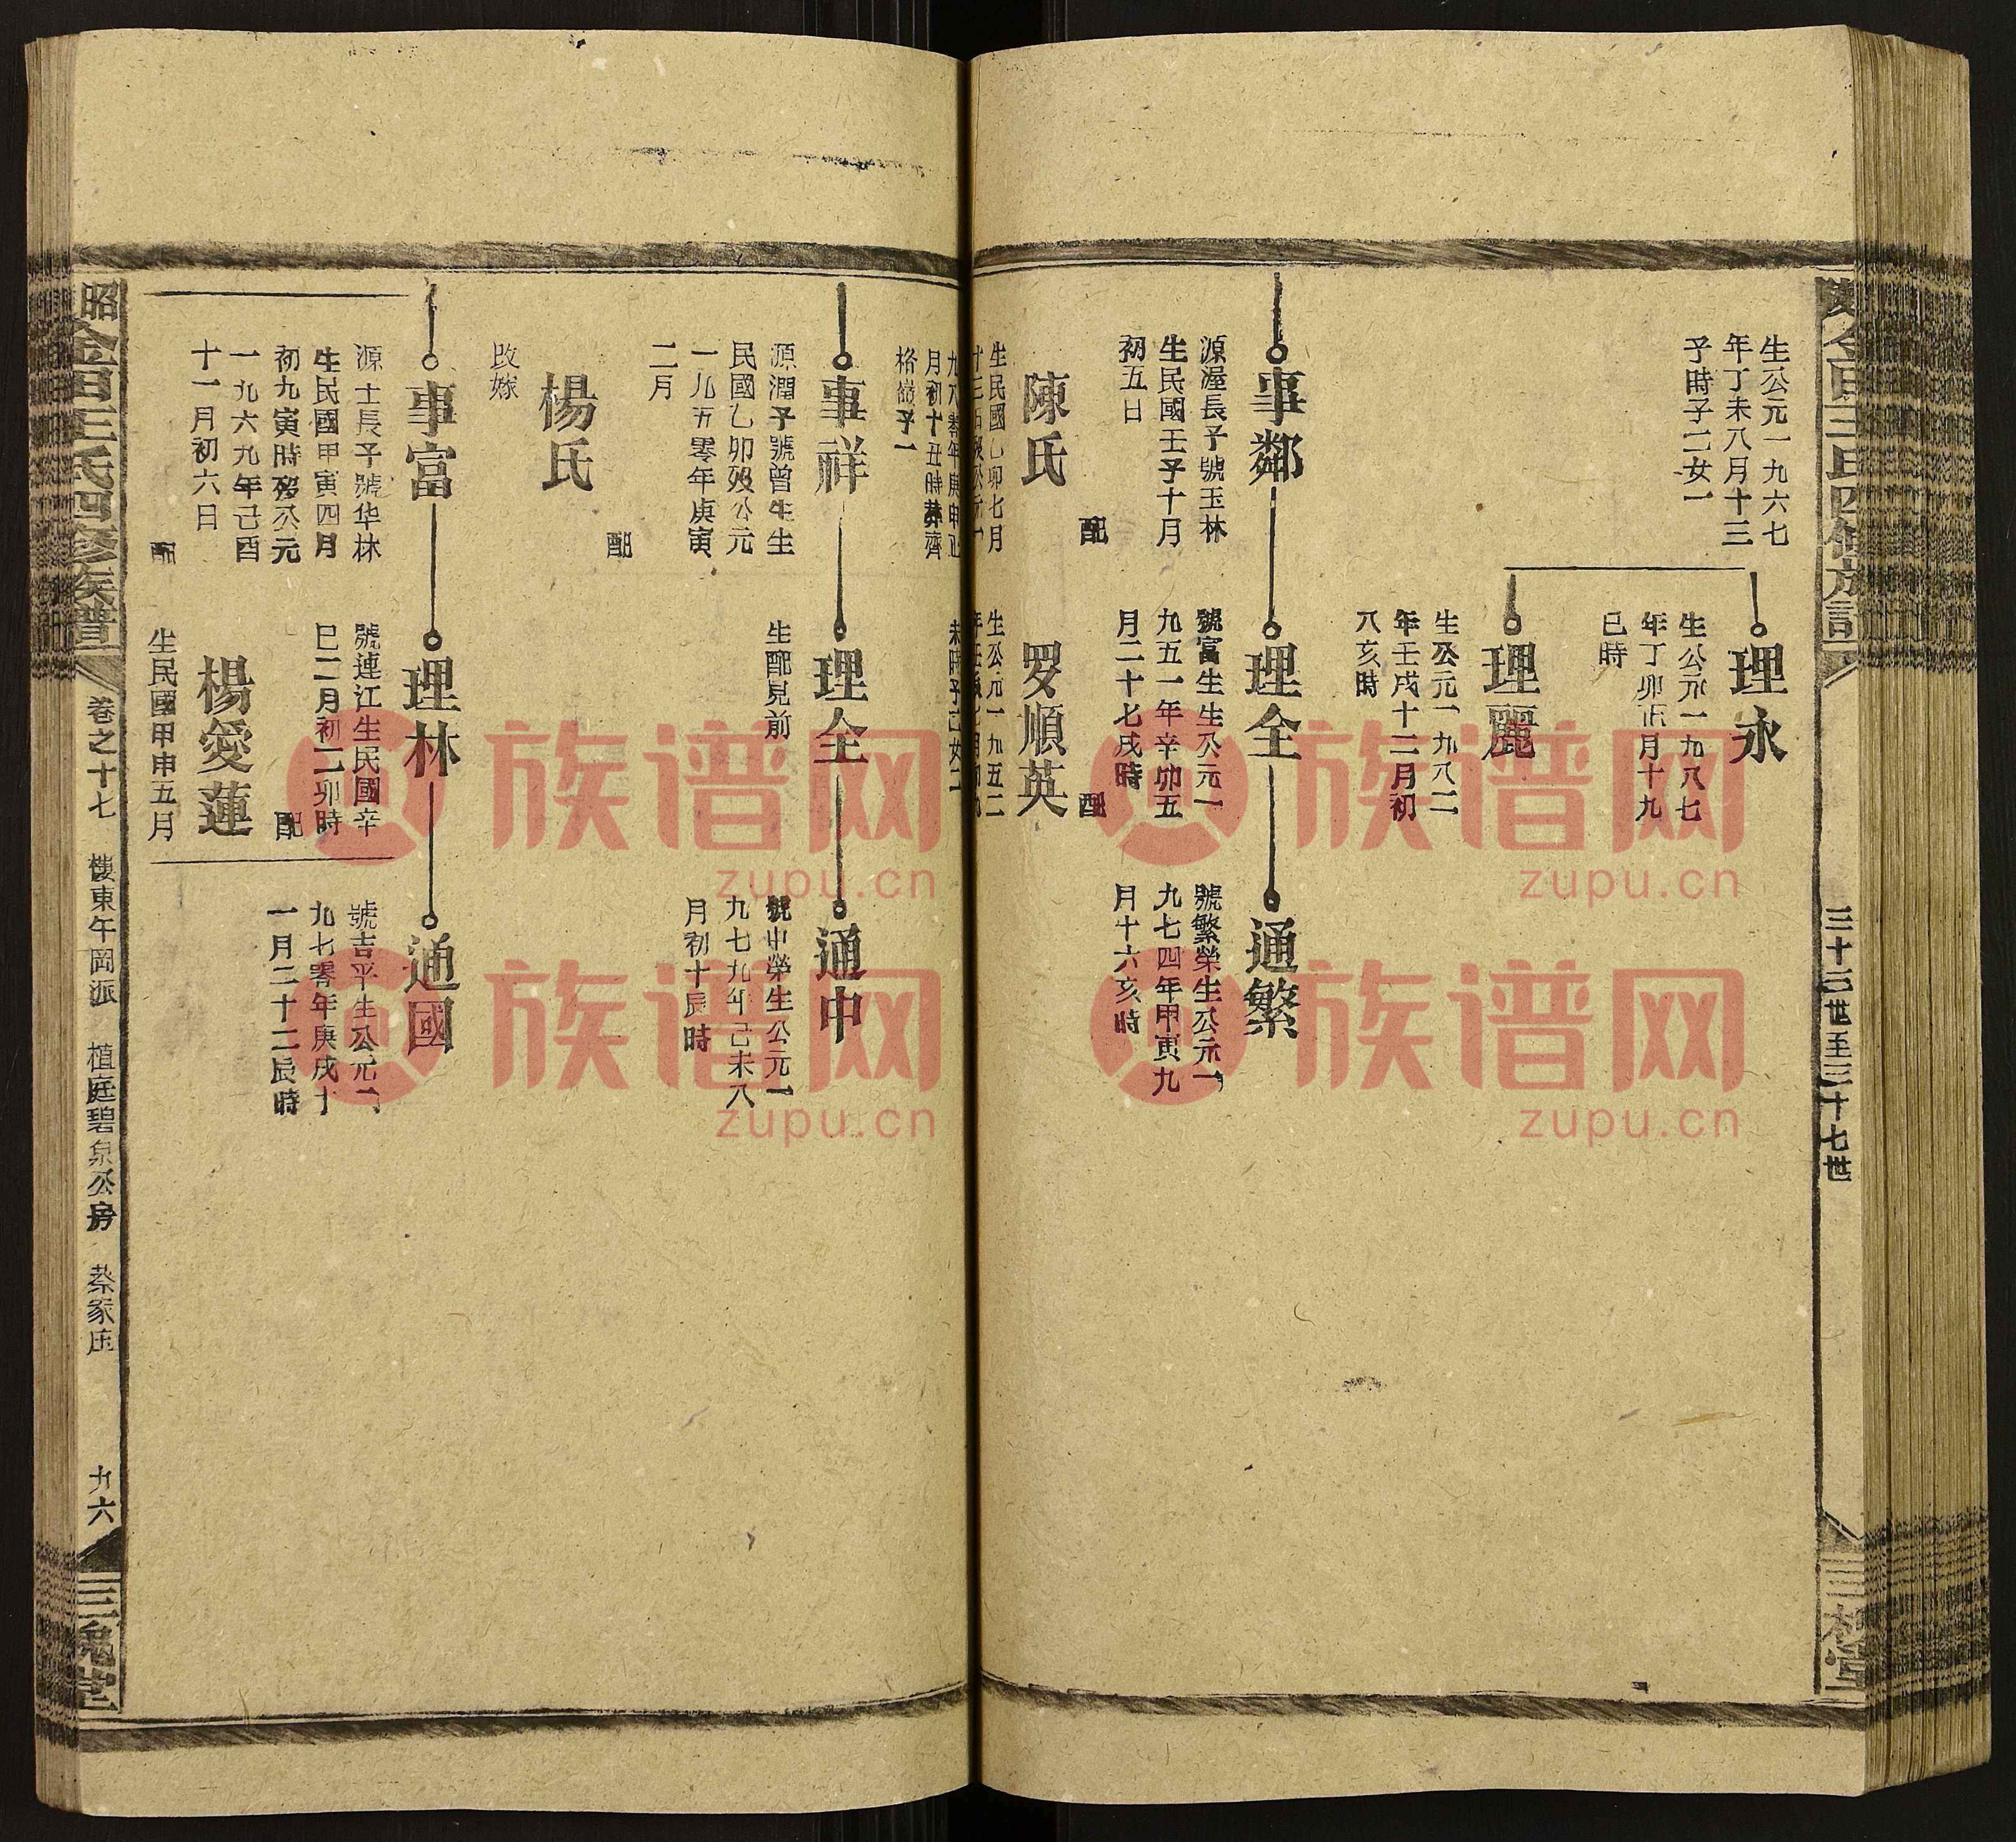 生公元一九六七
年丁未八月十三
子時子二女一
理永
生公元一九八七
年丁卯正月十九
巳時
理麗
生公元一九八二
年壬戌十二月初
八亥時
事鄰
源渥長子號玉林
生民國壬子十月
初五日
配
陳氏
生民國乙卯七月
月初十丑時葬齊
格嶺子一
理全
號富生生公元一
九五一年辛卯五
月二十七戌時
配
罗順英
生公元一九五二
未時子己女二
通繁
號繁榮生公元一
九七四年甲寅九
月十六亥時
三十三世至三十七世
三槐堂
事祥
源潤子號曾生生
民國乙卯殁公元
一九五零年庚寅
二月
配
楊氏
改嫁
理全
生配見前
通中
號中榮生公元一
九七九年己未八
月初十辰時
事富
源士長子號华林
生民國甲寅四月
初九寅時殁公元
一九六九年己酉
十一月初六日
配
理林
號連江生民國辛
巳二月初二卯時
配
楊愛蓮
生民國甲申五月
通國
號吉平生公元一
九七零年庚戌十
一月二十二辰時
昭
金田王氏四修族譜
卷之十七
樓東午岡派
植庭碧泉公房
蔡家庄
九六
三槐堂
族谱网
zupu.cn
族谱网
zupu.cn
族谱网
zupu.cn
族谱网
zupu.cn